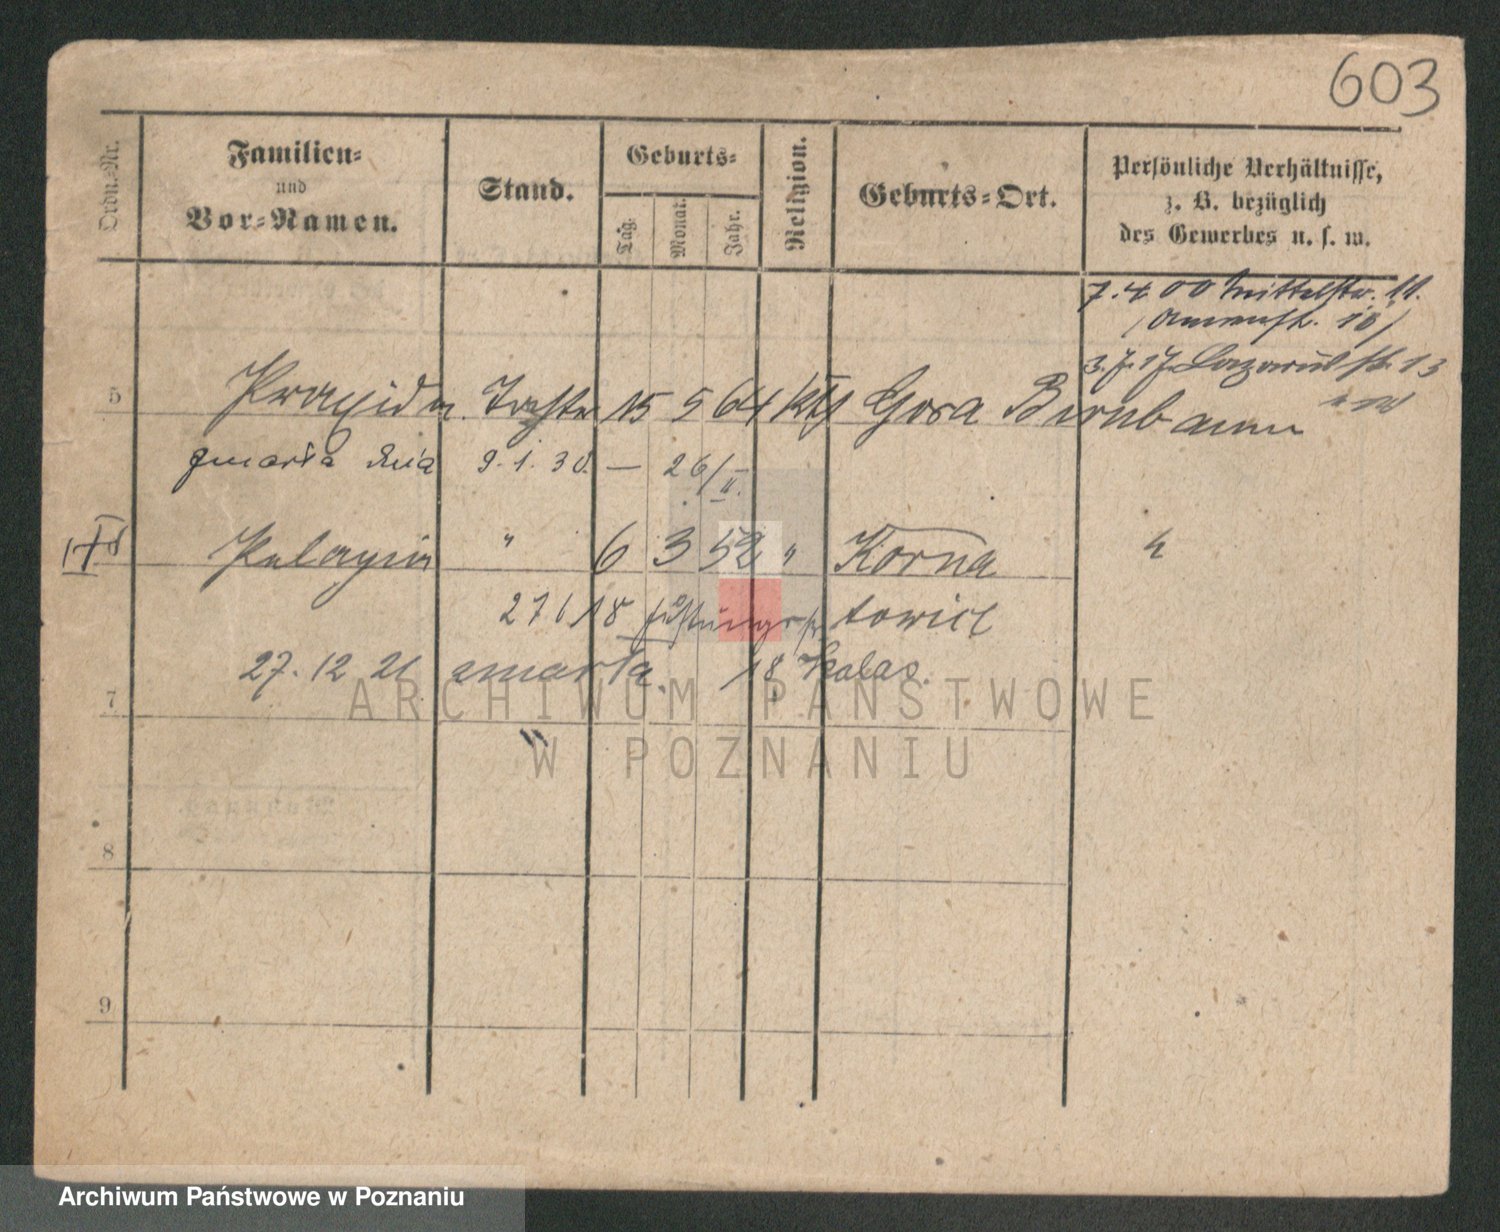 603
Ordn.-Nr.
Familien-
und
Vor-Namen.
Stand.
Geburts-
Tag.
Monat.
Jahr.
Religion.
Geburts-Ort.
Persönliche Verhältnisse,
z. B. bezüglich
des Gewerbes u. s. w.
7. 4 00 Mittelstr. 11.
3. 7. 17 Lazarusstr. 13
5 Praxida Tochter 15 5 64 kth Gora Birnbaum
zmarła dnia 9. 1. 30. — 26/II.
6 Pelagia " 6 3 52 " Korna
27 6 18 towicz
27. 12 21 zmarła. 18
7
8
9
ARCHIWUM PAŃSTWOWE
W POZNANIU
Archiwum Państwowe w Poznaniu